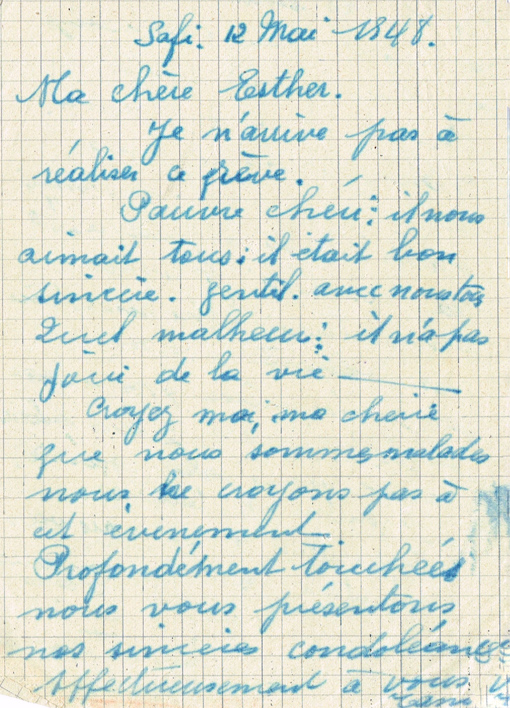 Safi. 12 Mai 1948.
Ma chère Esther.
Je n'arrive pas à
réaliser ce grève.
Pauvre chéri: il nous
aimait tous: il était bon
sincère. gentil. avec nous tous
Quel malheur: il n'a pas
joui de la vie
Croyez moi, ma chérie
que nous sommes malades
nous ne croyons pas à
cet évenement
Profondément touchées
nous vous présentons
nos sincères condoléances
Affectueusement à vous